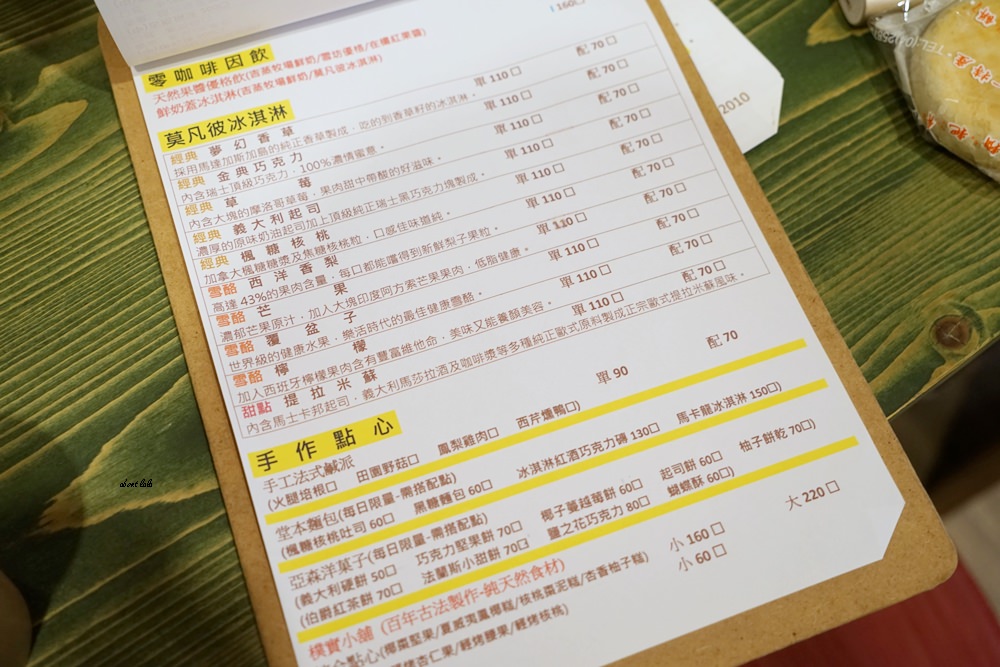 160口
零咖啡因飲
天然果醬優格飲(吉蒸牧場鮮奶/雪坊優格/在欉紅果醬)
鮮奶蓋冰淇淋(吉蒸牧場鮮奶/莫凡彼冰淇淋)
莫凡彼冰淇淋
經典 夢幻香草 單 110 口 配 70 口
採用馬達加斯加島的純正香草製成,吃的到香草籽的冰淇淋。
經典 金典巧克力 單 110 口 配 70 口
內含瑞士頂級巧克力,100%濃情蜜意。
經典 草莓 單 110 口 配 70 口
內含大塊的摩洛哥草莓,果肉甜中帶酸的好滋味。
經典 義大利起司 單 110 口 配 70 口
濃厚的原味奶油起司加上頂級純正瑞士黑巧克力塊製成。
經典 楓糖核桃 單 110 口 配 70 口
加拿大楓糖糖漿及焦糖核桃粒,口感佳味道純。
雪酪 西洋香梨 單 110 口 配 70 口
高達 43%的果肉含量,每口都能嚐得到新鮮梨子果粒。
雪酪 芒果 單 110 口 配 70 口
濃郁芒果原汁,加入大塊印度阿方索芒果果肉,低脂健康。
雪酪 覆盆子 單 110 口 配 70 口
世界級的健康水果,樂活時代的最佳健康雪酪。
雪酪 檸檬 單 110 口 配 70 口
加入西班牙檸檬果肉含有豐富維他命,美味又能養顏美容。
甜點 提拉米蘇
內含馬士卡邦起司,義大利馬莎拉酒及咖啡漿等多種純正歐式原料製成正宗歐式提拉米蘇風味。
手作點心
手工法式鹹派 單 90 配 70
(火腿培根口 田園野菇口 鳳梨雞肉口 西芹燻鴨口)
堂本麵包(每日限量-需搭配點)
(楓糖核桃吐司 60口 黑糖麵包 60口 冰淇淋紅酒巧克力磚 130口 馬卡龍冰淇淋 150口)
亞森洋菓子(每日限量-需搭配點)
(義大利硬餅 50口 巧克力堅果餅 70口 椰子蔓越莓餅 60口 起司餅 60口 柚子餅乾 70口)
(伯爵紅茶餅 70口 法蘭斯小甜餅 70口 鹽之花巧克力 80口 蝴蝶酥 60口)
樸實小舖(百年古法製作-純天然食材)
(椰棗堅果/夏威夷鳳椰糕/核桃棗泥糕/杏香柚子糕) 小 160 口 大 220 口
杏仁果/輕烤腰果/輕烤核桃) 小 60 口
2010
about lulu